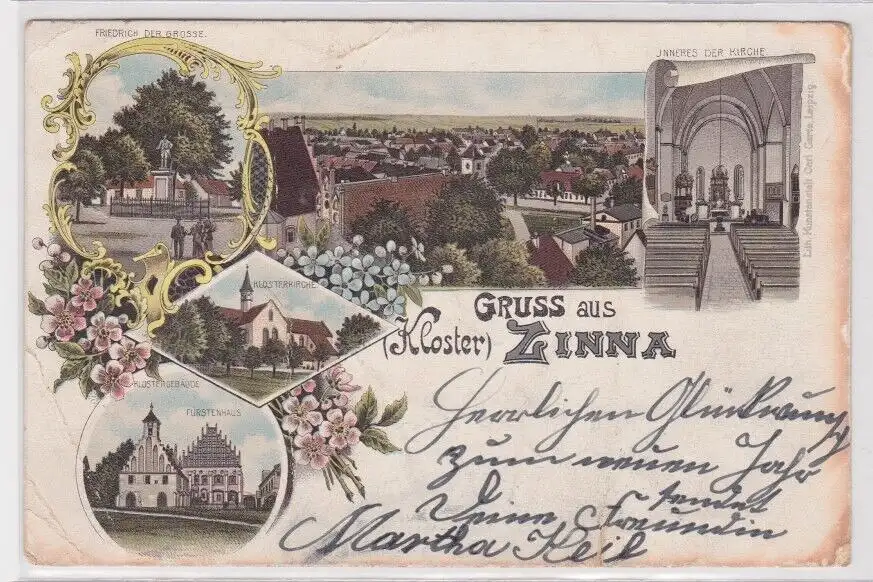 FRIEDRICH DER GROSSE.
JNNERES DER KIRCHE.
Lith. Kunstanstalt Carl Garte, Leipzig
KLOSTERKIRCHE
GRUSS AUS
(Kloster) ZINNA
KLOSTERGEBÄUDE
FÜRSTENHAUS
Herrlichen Glückwunsch
zum neuen Jahr
sendet
Deine Freundin
Martha Keil